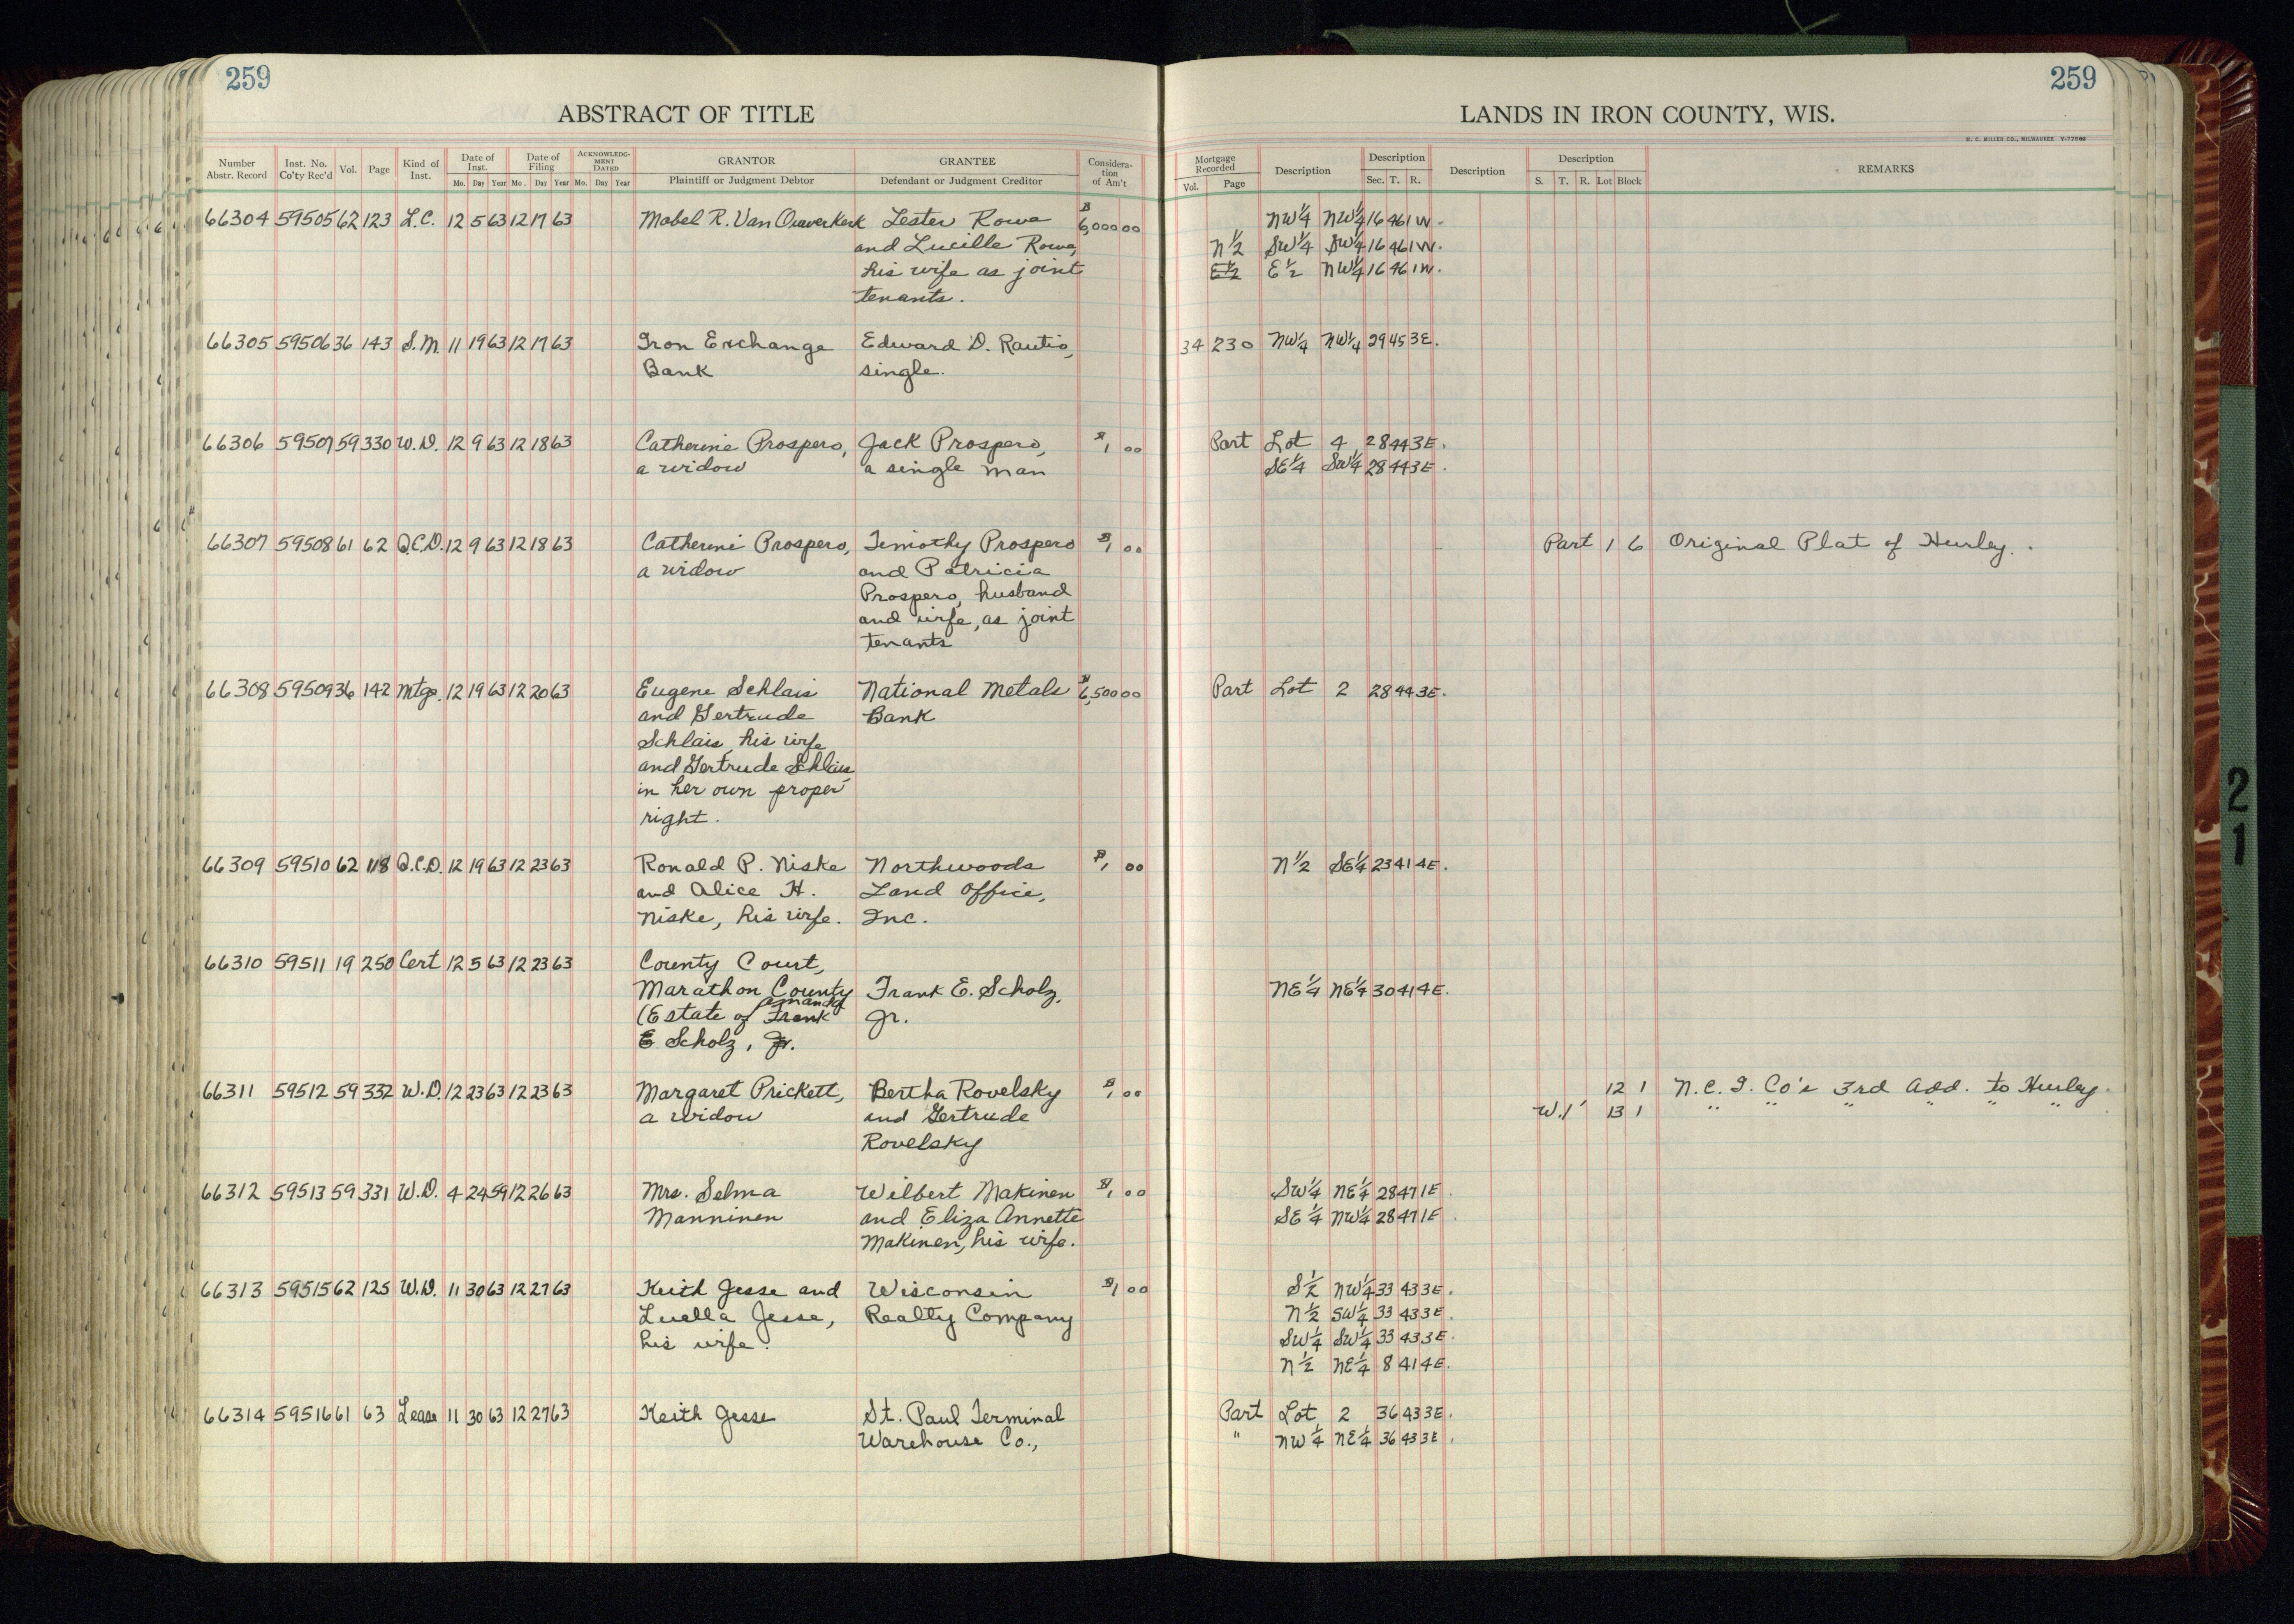 259
259
ABSTRACT OF TITLE
LANDS IN IRON COUNTY, WIS.
H. C. MILLER CO., MILWAUKEE
Number Abstr. Record Inst. No. Co'ty Rec'd Vol. Page Kind of Inst. Date of Inst. Mo. Day Year Date of Filing Mo. Day Year ACKNOWLEDGMENT DATED Mo. Day Year GRANTOR Plaintiff or Judgment Debtor GRANTEE Defendant or Judgment Creditor Consideration of Am't Mortgage Recorded Vol. Page Description Description Sec. T. R. Description Description S. T. R. Lot Block REMARKS
66304 59505 62 123 L.C. 12 5 63 12 17 63 Mabel R. Van Ouwerkerk Lester Rowa $6,000 00 NW¼ NW¼ 16 46 1W.
and Lucille Rowa, N½ SW¼ SW¼ 16 46 1W.
his wife as joint E½ E½ NW¼ 16 46 1W.
tenants.
66305 59506 36 143 S.M. 11 19 63 12 17 63 Iron Exchange Edward D. Rautio, 34 230 NW¼ NW¼ 29 45 3E.
Bank single.
66306 59507 59 330 W.D. 12 9 63 12 18 63 Catherine Prospero, Jack Prospero, $1 00 Part Lot 4 28 44 3E.
a widow a single man SE¼ SW¼ 28 44 3E.
66307 59508 61 62 Q.C.D. 12 9 63 12 18 63 Catherine Prospero, Timothy Prospero $1 00 Part 1 6 Original Plat of Hurley.
a widow and Patricia
Prospero, husband
and wife, as joint
tenants
66308 59509 36 142 Mtge. 12 19 63 12 20 63 Eugene Schlais National Metals $6,500 00 Part Lot 2 28 44 3E.
and Gertrude Bank
Schlais, his wife
and Gertrude Schlais,
in her own proper
right.
66309 59510 62 118 Q.C.D. 12 19 63 12 23 63 Ronald P. Niske Northwoods $1 00 N½ SE¼ 23 41 4E.
and Alice H. Land Office,
Niske, his wife. Inc.
66310 59511 19 250 Cert 12 5 63 12 23 63 County Court,
Marathon County Frank E. Scholz, NE¼ NE¼ 30 41 4E.
Amanda
(Estate of Frank Jr.
E Scholz, Jr.
66311 59512 59 332 W.D. 12 23 63 12 23 63 Margaret Prickett, Bertha Rovelsky $1 00 12 1 N.C.I. Co's 3rd Add. to Hurley.
a widow and Gertrude W.1' 13 1 " " " " " "
Rovelsky
66312 59513 59 331 W.D. 4 24 59 12 26 63 Mrs. Selma Wilbert Makinen $1 00 SW¼ NE¼ 28 47 1E.
Manninen and Eliza Annette SE¼ NW¼ 28 47 1E.
Makinen, his wife.
66313 59515 62 125 W.D. 11 30 63 12 27 63 Keith Jesse and Wisconsin $1 00 S½ NW¼ 33 43 3E.
Luella Jesse, Realty Company N½ SW¼ 33 43 3E.
his wife. SW¼ SW¼ 33 43 3E.
N½ NE¼ 8 41 4E.
66314 59516 61 63 Lease 11 30 63 12 27 63 Keith Jesse St. Paul Terminal Part Lot 2 36 43 3E.
Warehouse Co., " NW¼ NE¼ 36 43 3E.
21